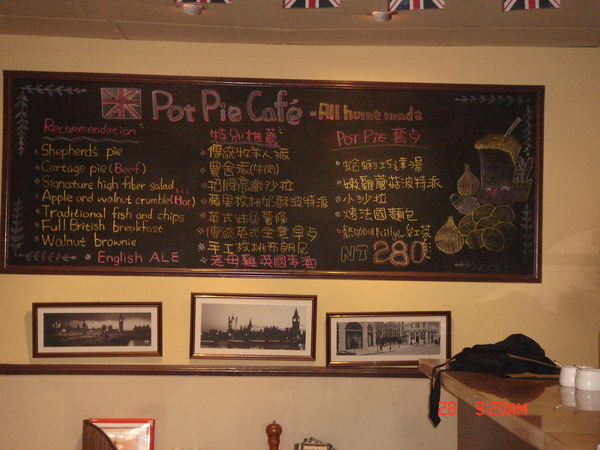 Pot Pie Café - All home made
Recommendation
Shepherd's pie
Cottage pie (Beef)
Signature high fiber salad...
Apple and walnut crumble (Hot)
Traditional fish and chips
Full British breakfast
Walnut brownie
English ALE
特別推薦
傳統牧羊人派
農舍派(牛肉)
招牌高纖沙拉
蘋果核桃奶酥波特派
英式炸魚薯條
傳統英式全套早点
手工核桃布朗尼
老母雞英國麥酒
Pot Pie 套点
蛤蜊巧達湯
嫩雞蘑菇波特派
小沙拉
烤法國麵包
紅茶
NT 280
28 9:20AM